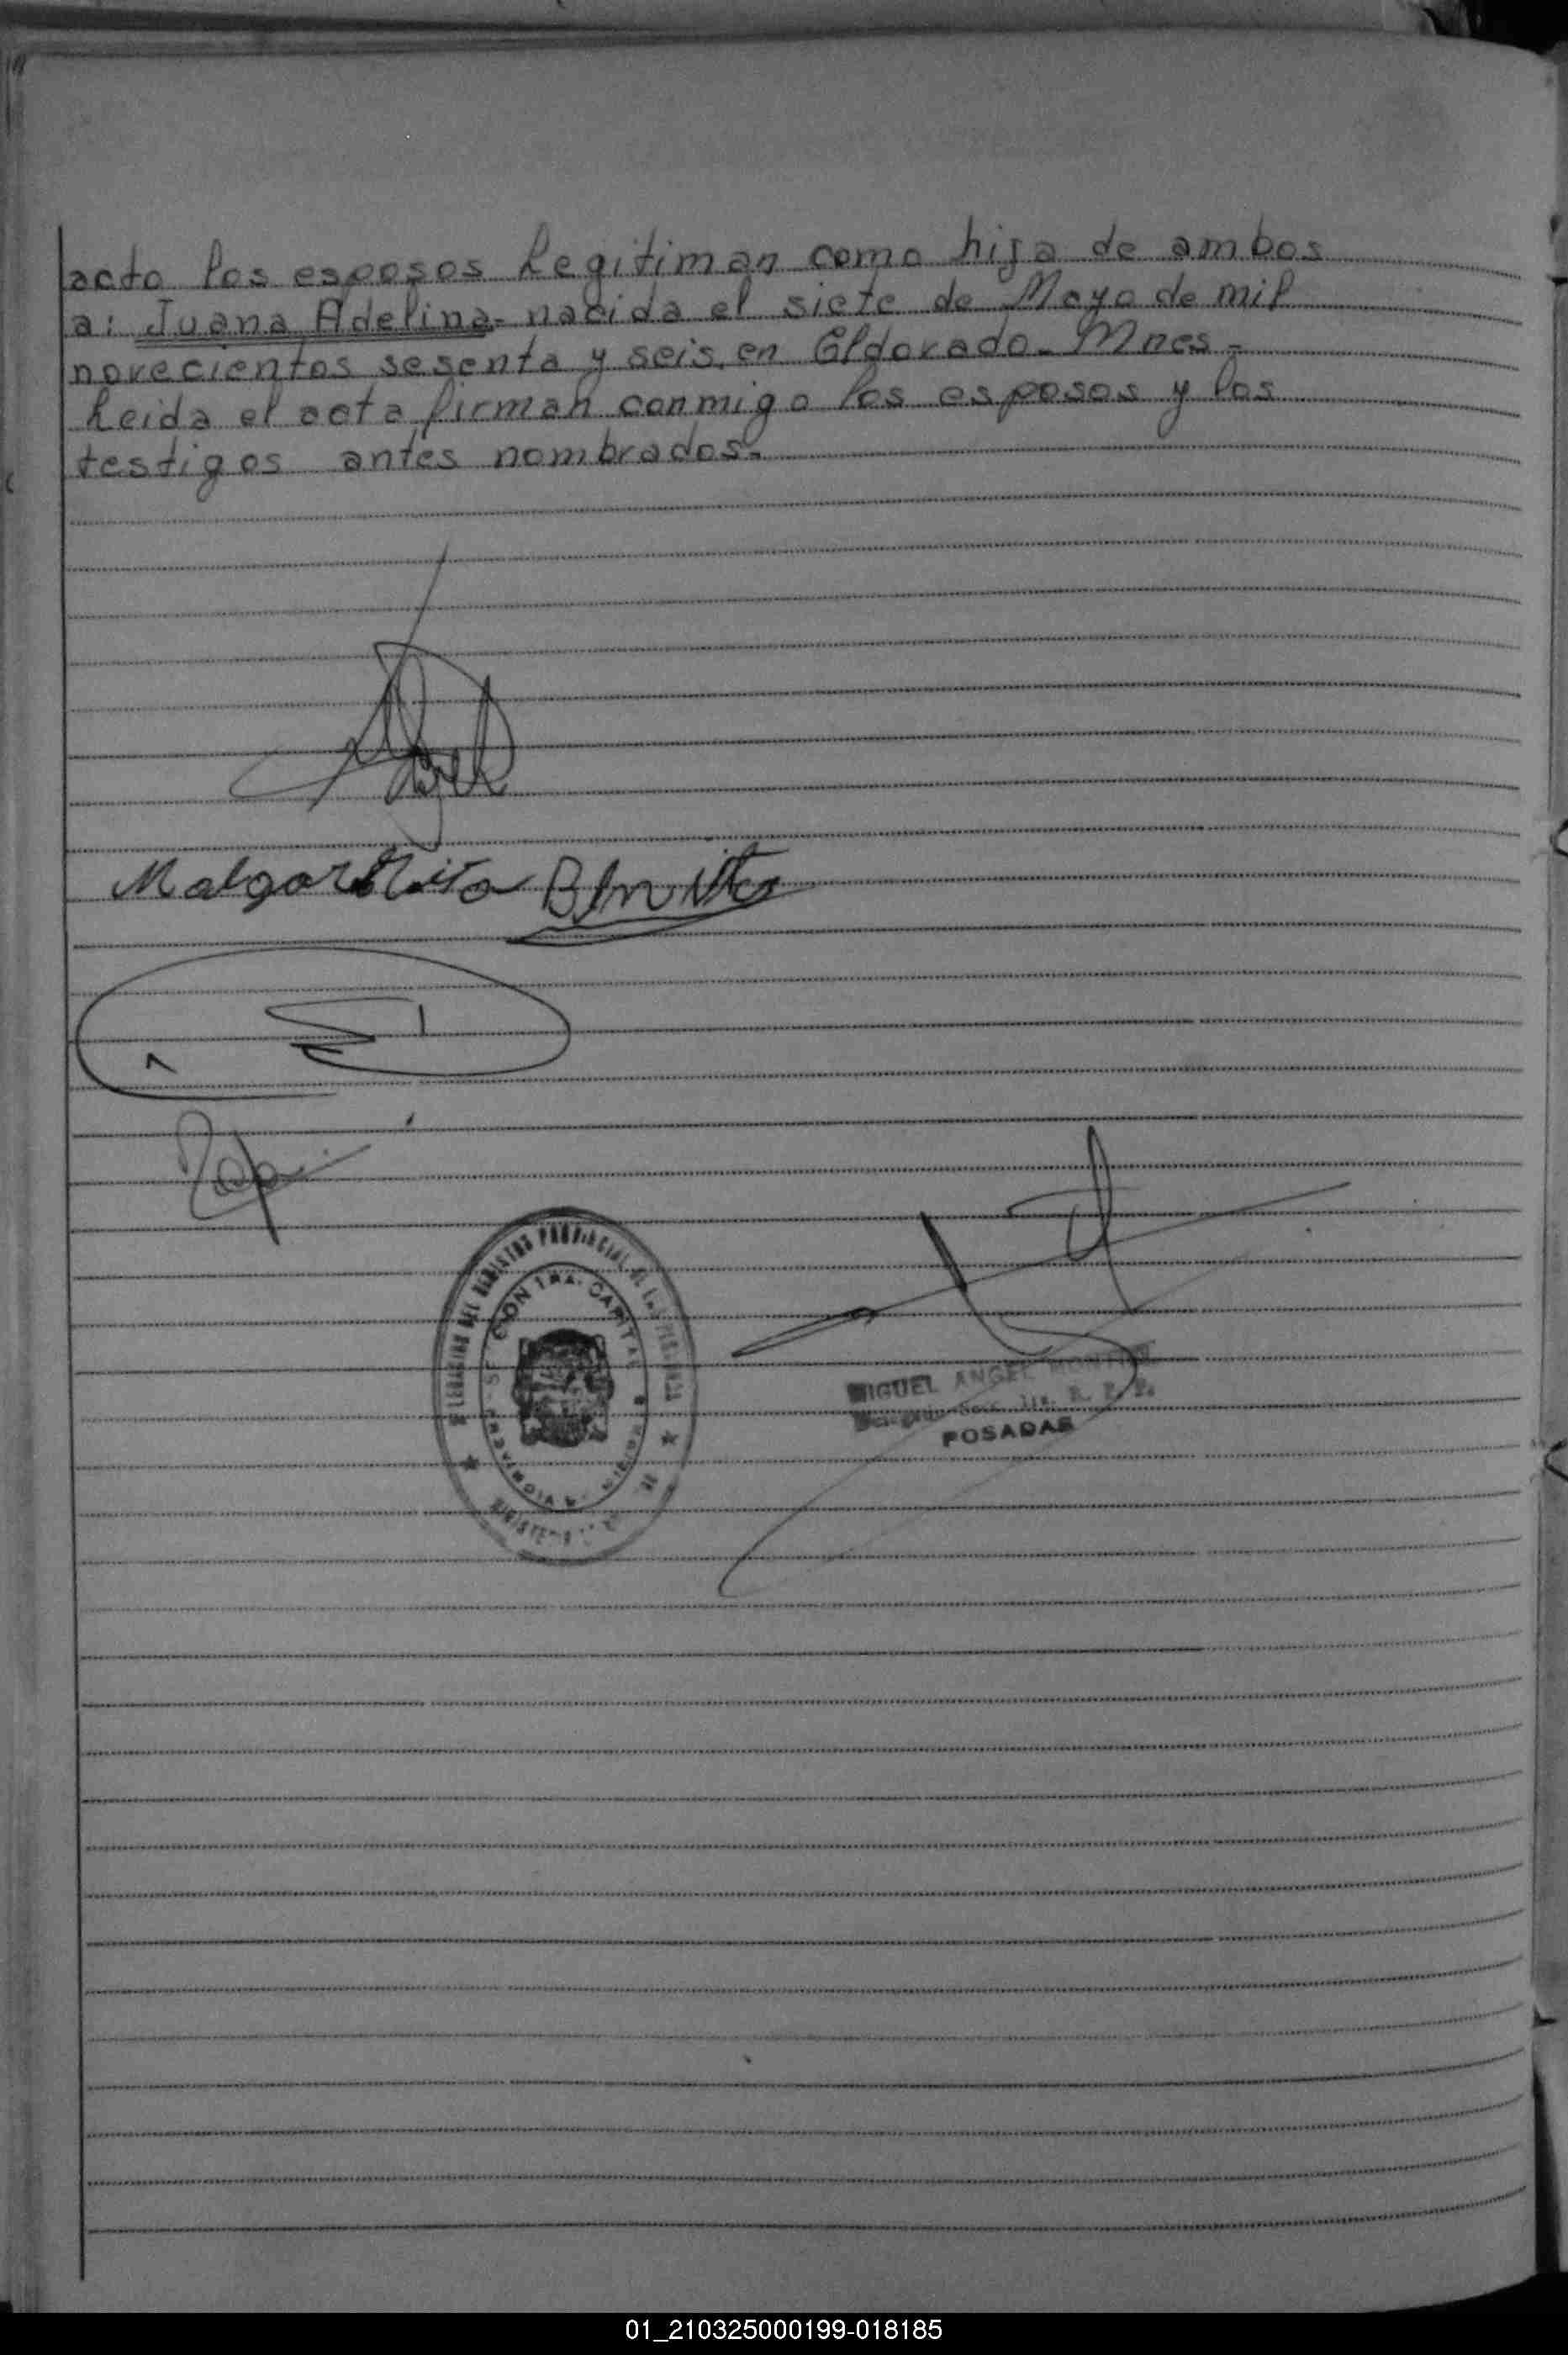 acto los esposos Legitiman como hija de ambos
a: Juana Adelina- nacida el siete de Mayo de mil
novecientos sesenta y seis, en Eldorado- Mnes-
Leida el acta firman conmigo los esposos y los
testigos antes nombrados-
Malgarita Benitez
REGISTRO PROVINCIAL DE LAS PERSONAS
SECCION 1RA. CAPITAL
MIGUEL ANGEL
POSADAS
01_210325000199-018185